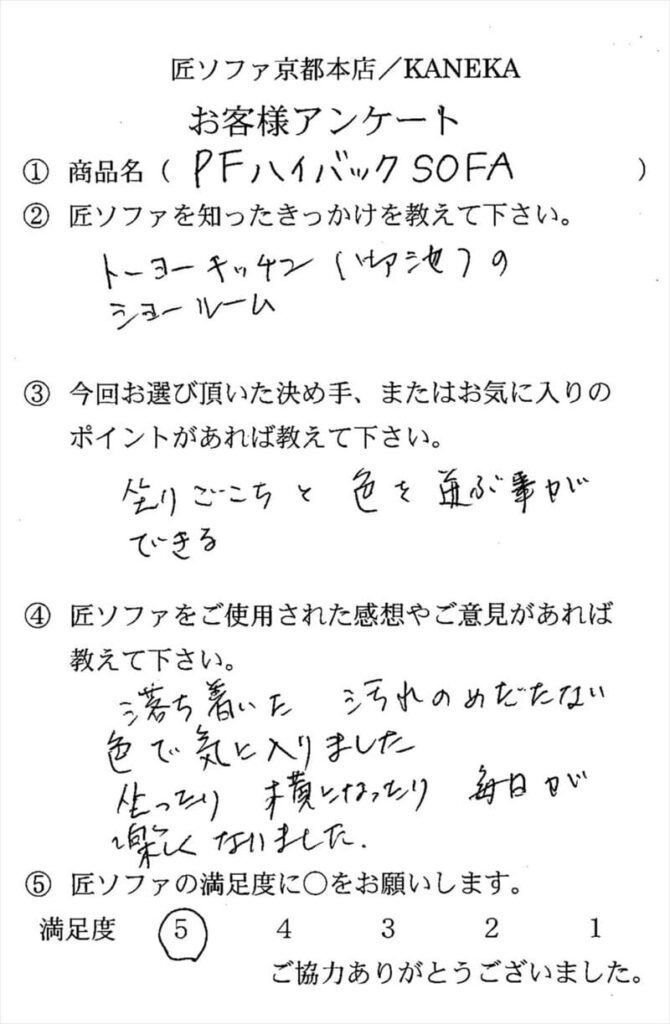 匠ソファ京都本店／KANEKA
お客様アンケート
① 商品名（ PFハイバックSOFA ）
② 匠ソファを知ったきっかけを教えて下さい。
トーヨーキッチン（　池）の
ショールーム
③ 今回お選び頂いた決め手、またはお気に入りの
ポイントがあれば教えて下さい。
坐りごこちと 色を 選ぶ事が
できる
④ 匠ソファをご使用された感想やご意見があれば
教えて下さい。
落ち着いた 汚れのめだたない
色で気に入りました
坐ったり 横になったり 毎日が
楽しくなりました.
⑤ 匠ソファの満足度に○をお願いします。
満足度 5 4 3 2 1
ご協力ありがとうございました。